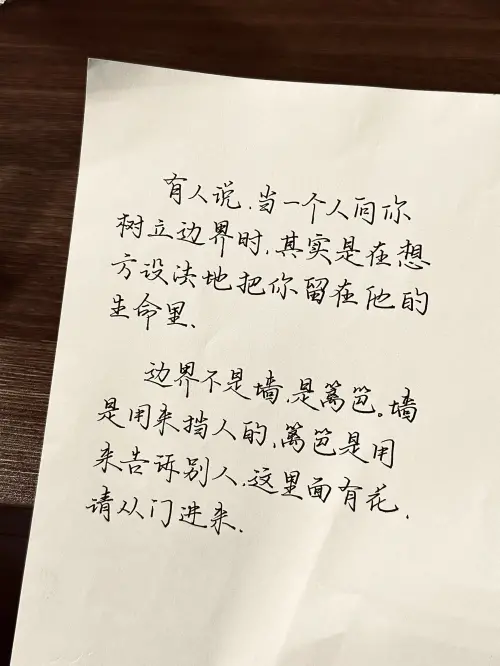 有人说,当一个人向你
树立边界时,其实是在想
方设法地把你留在他的
生命里.
边界不是墙,是篱笆。墙
是用来挡人的,篱笆是用
来告诉别人,这里面有花,
请从门进来.